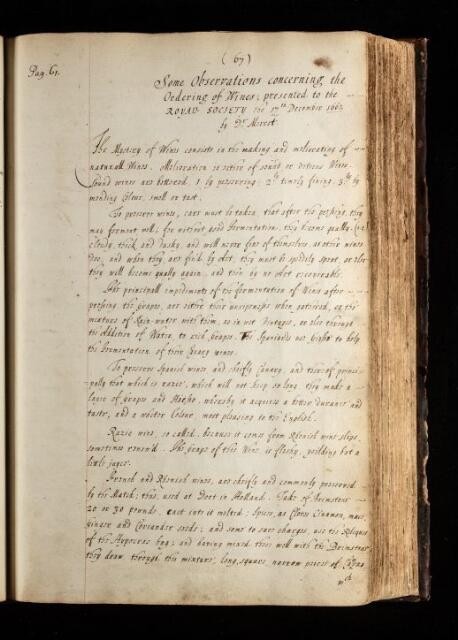 (67)
Pag. 61.
Some Observations concerning the
Ordering of Wines; presented to the
ROYAL SOCIETY the 17th December 1662
by Dr Merret.
The Mystery of Wines consists in the making and meliorating of
naturall Wines. Melioration is either of sound or vitious Wines.
Sound wines are bettered, 1. by preserving: 2ly timely fining. 3ly by
mending Colour, smell or tast.
To preserve wines, care must be taken, that after the pressing, they
may ferment well; for without good fermentation, they become qually (i.e)
cloudy, thick and dusky, and will never fine of themselves, as other wines
doe; and when they are fin'd by Art, they must be spedily spent, or else
they will become qually again, and then by no Art recoverable.
The principall impediments of the fermentation of Wines after
pressing the Grapes, are either their unripeness when gathered, or the
mixture of Rain-water with them, as in wet Vintages, or else through
the addition of Water to rich Grapes. The Spaniards use to help
the fermentation of their Canary wines.
To preserve Spanish wines and chiefly Canary, and thereof princi-
pally that which is razie, which will not keep so long, they make a
layer of Grapes and whereby it acquires a better durance and
taste, and a whiter Colour, most pleasing to the English.
Razie wine, so called, because it comes from Rhenish wine slips,
sometimes renew'd. The Grape of this Wine is fleshy, yeilding but a
little juyce.
French and Rhenish wines, are chiefly and commonly preserved
by the Match; thus used at Dort in Holland. Take of Brimstone
20 or 30 pounds. cast into it melted: Spices, as Cloves Cinamon, mace,
Ginger and Coriander seeds; and some to save charges, use the Reliques
of the Hypocras bag; and having mixed these well with the Brimstone
they draw through this mixture, long, square, narrow pieces of Canva